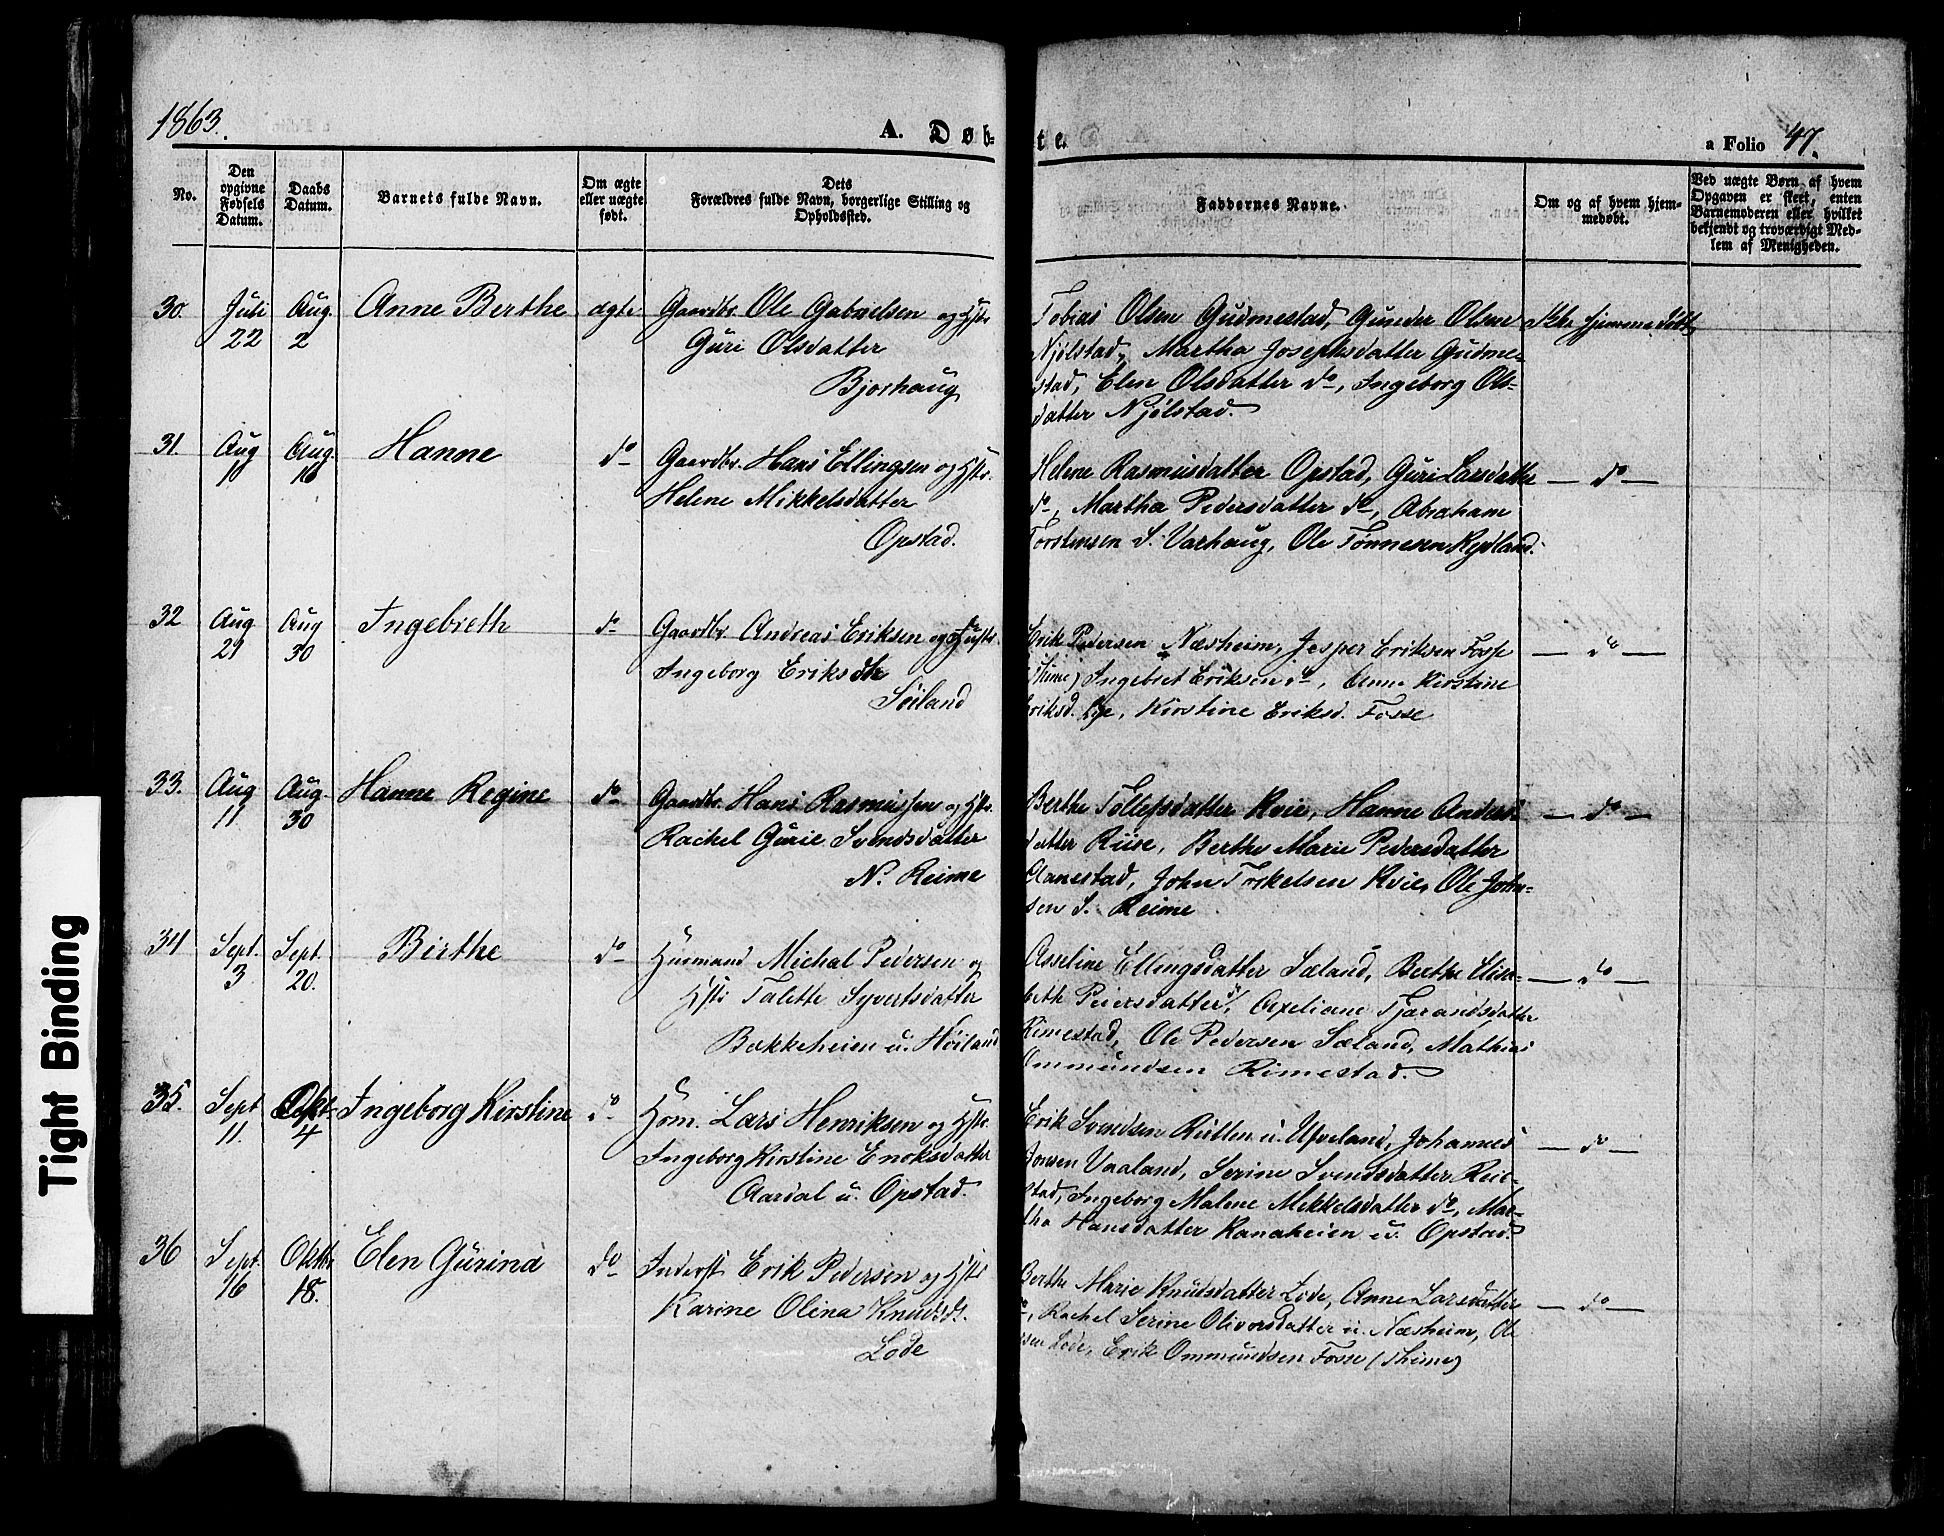 1863.
A. Døb-
te.
a Folio 47.
No.
Den opgivne Fødsels Datum.
Daabs Datum.
Barnets fulde Navn.
Om ægte eller uægte født.
Dets Forældres fulde Navn, borgerlige Stilling og Opholdssted.
Faddernes Navne.
Om og af hvem hjem-
medøbt.
Ved uægte Børn af hvem
Opgaven er skeet, enten
Barnemoderen eller hvilket
bekjendt og troværdigt Med-
lem af Menigheden.
30. Juli 22 Aug. 2 Anne Berthe ægte Gaardbr. Ole Gabrielsen og Hstr
Guri Olsdatter
Bjorhaug
Tobias Olsen Gudmestad, Gunder Olsen
Njølstad, Martha Josephsdatter Gudme-
stad, Elen Olsdatter do, Ingeborg Ols-
datter Njølstad.
Ikke hjemmedøbt
31. Aug 10 Aug. 16 Hanne do Gaardbr. Hans Ellingsen og Hstr.
Helene Mikkelsdatter
Opstad.
Helene Rasmusdatter Opstad, Guri Larsdatter
do, Martha Pedersdatter do, Abraham
Torstensen S. Varhaug, Ole Tønnesen Rydland.
— do —
32 Aug 29 Aug 30 Ingebreth do Gaardbr. Andreas Eriksen og Hustr.
Ingeborg Eriksdtr
Søiland
Erik Pedersen Næsheim, Jesper Eriksen Fosse
(Thime) Ingebret Eriksen do, Anne Kirstine
Eriksd. Lye, Kirstine Eriksd. Fosse
— do —
33. Aug 11. Aug. 30 Hanne Regine do Gaardbr. Hans Rasmussen og Hstr.
Rachel Gurie Svendsdatter
N. Reime
Berthe Tollefsdatter Kvie, Hanne Anders
datter Riise, Berthe Marie Pedersdatter
Aanestad, John Torkelsen Kvie, Ole John-
sen S. Reime
— do —
34 Sept. 3 Sept. 20. Birthe do Husmand Michal Pedersen og
Hstr Talette Syvertsdatter
Bakkeheien u. Høiland
Asseline Ellingsdatter Sæland, Berthe Elisa-
beth Peiersdatter do, Axeliane Tjærandsdatter
Rimestad, Ole Pedersen Sæland, Mathias
Ommundsen Rimestad.
— do —
35. Sept 11. Okt. 4 Ingeborg Kirstine do Hsm. Lars Henriksen og Hstr.
Ingeborg Kirstine Enoksdatter
Aardal u. Opstad.
Erik Svendsen Rutlen u. Ueland, Johannes
Jonsen Vaaland, Serine Svendsdatter Rei-
stad, Ingeborg Malene Mikkelsdatter do, Mar-
tha Hansdatter Kanaheien u. Opstad.
— do —
36 Sept. 16 Oktbr. 18. Elen Gurina do Inderst Erik Pedersen og Hstr
Karine Olina Knudsd.
Lode
Berthe Marie Knudsdatter Lode, Anne Larsdatter
do, Rachel Serine Oliversdatter u. Næsheim, Ole
sen Lode, Erik Ommundsen Fosse (Thime)
— do —
Tight Binding